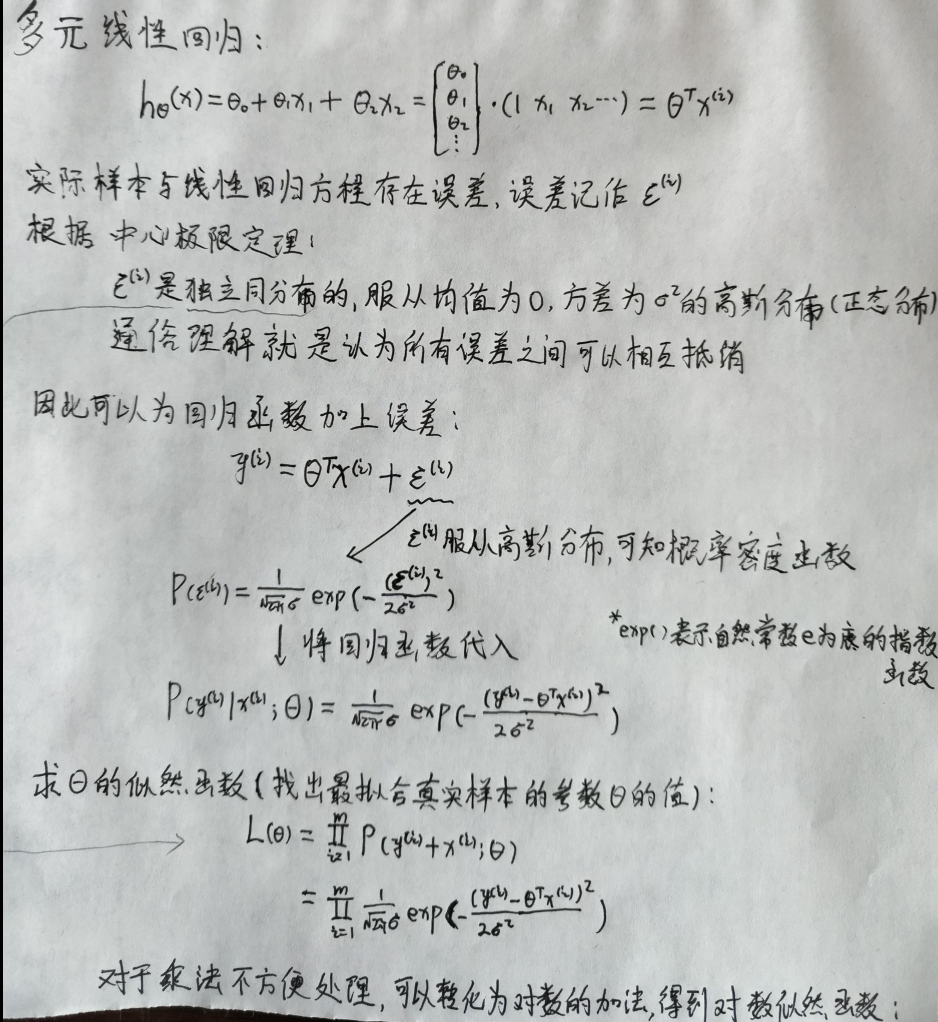 多元线性回归:
hθ(x)=θ₀+θ₁x₁+θ₂x₂=[θ₀ θ₁ θ₂ ⋮]·(1 x₁ x₂⋯)=θᵀx⁽ⁱ⁾
实际样本与线性回归方程存在误差,误差记作 ε⁽ⁱ⁾
根据 中心极限定理:
ε⁽ⁱ⁾是独立同分布的,服从均值为0,方差为σ²的高斯分布(正态分布)
通俗理解就是认为所有误差之间可以相互抵销
因此可以为回归函数加上误差:
y⁽ⁱ⁾=θᵀx⁽ⁱ⁾+ε⁽ⁱ⁾
ε⁽ⁱ⁾服从高斯分布,可知概率密度函数
P(ε⁽ⁱ⁾)=1/(√2πσ) exp(-(ε⁽ⁱ⁾)²/2σ²)
↓将回归函数代入
*exp()表示自然常数e为底的指数
函数
P(y⁽ⁱ⁾|x⁽ⁱ⁾;θ)=1/(√2πσ) exp(-(y⁽ⁱ⁾-θᵀx⁽ⁱ⁾)²/2σ²)
求θ的似然函数(找出最拟合真实样本的参数θ的值):
L(θ)=∏ᵢ₌₁ᵐ P(y⁽ⁱ⁾+x⁽ⁱ⁾;θ)
=∏ᵢ₌₁ᵐ 1/(√2πσ) exp(-(y⁽ⁱ⁾-θᵀx⁽ⁱ⁾)²/2σ²)
对于乘法不方便处理,可以转化为对数的加法,得到对数似然函数: